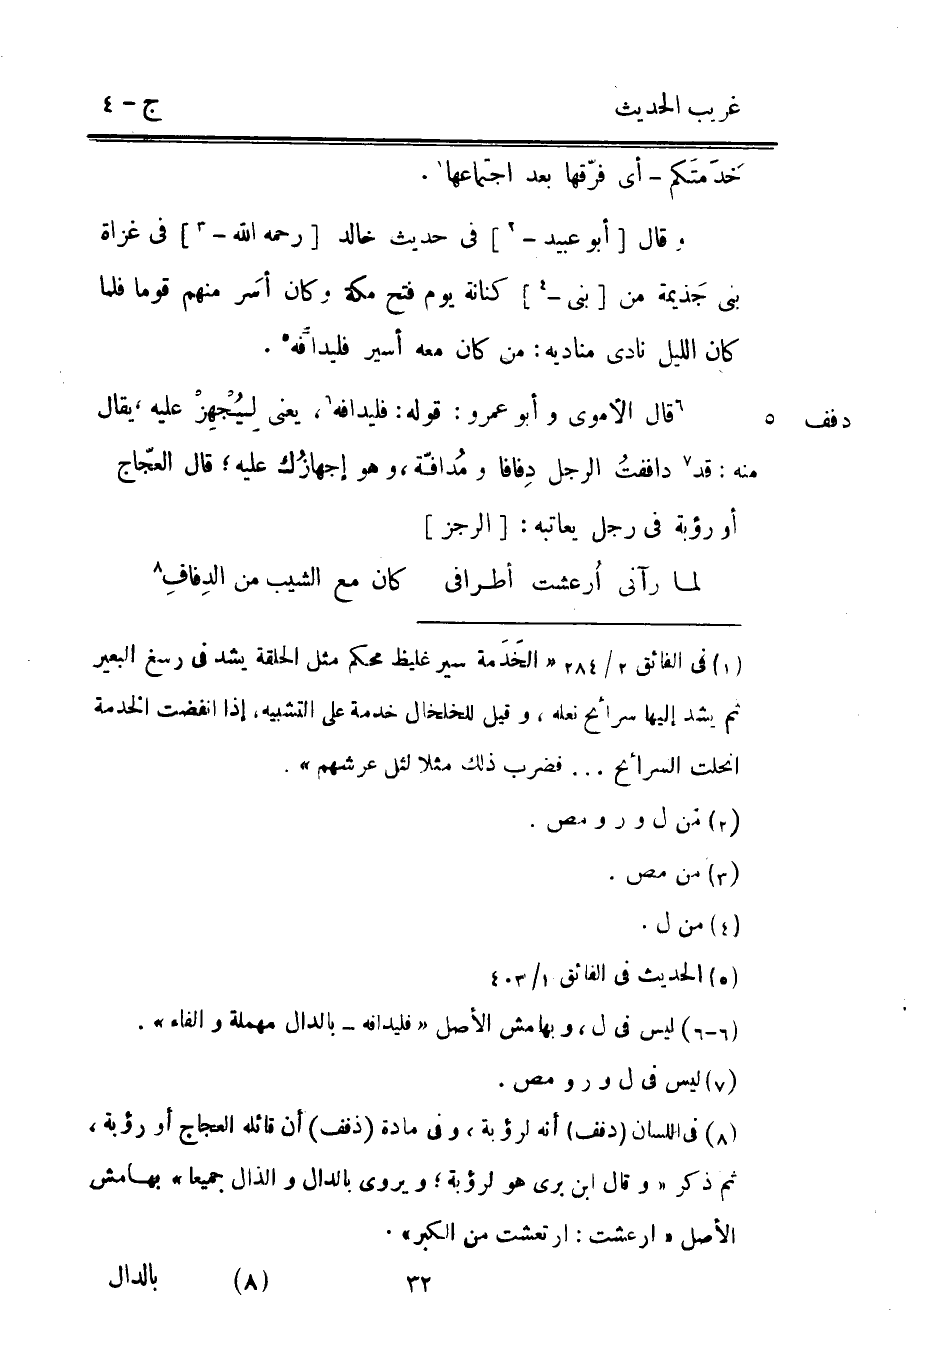 غريب الحديث ج – ٤
خَدَمتَكم – أى فرّقها بعد اجتماعها¹ .
و قال [ أبو عبيد – ² ] فى حديث خالد [ رحمه الله – ³ ] فى غزاة
بنى جَذيمة من [ بنى – ⁴ ] كنانة يوم فتح مكة وكان أسَر منهم قوما فلما
كان الليل نادى مناديه : من كان معه أسير فليدافّه⁵ .
دفف ٥ ⁶قال الأموى و أبو عمرو : قوله : فليدافه⁶ ، يعنى لِيُجْهِزْ عليه ، يقال
منه : قد⁷ داففتُ الرجل دِفافا و مُدافّة ، و هو إجهازُك عليه ؛ قال العجّاج
أو رؤبة فى رجل يعاتبه : [ الرجز ]
لما رآنى أُرعشت أطرافى كان مع الشيب من الدِفافِ⁸
(١) فى الفائق ٢/ ٢٨٤ « الخَدَمة سير غليظ محكم مثل الحلقة يشد فى رسغ البعير
ثم يشد إليها سرائح نعله ، و قيل للخلخال خدمة على التشبيه، إذا انفضت الخدمة
انحلت السرائح ... فضرب ذلك مثلا لثل عرشهم » .
(٢) من ل و ر و مص .
(٣) من مص .
(٤) من ل .
(٥) الحديث فى الفائق ١/ ٤٠٣
(٦–٦) ليس فى ل ، و بهامش الأصل « فليدافه – بالدال مهملة و الفاء » .
(٧) ليس فى ل و ر و مص .
(٨) فى اللسان (دفف) أنه لرؤبة ، و فى مادة (ذفف) أن قائله العجاج أو رؤبة ،
ثم ذكر « و قال ابن برى هو لرؤبة ؛ و يروى بالدال و الذال جميعا » بهامش
الأصل « ارعشت : ارتعشت من الكبر » .
٣٢ (٨) بالدال